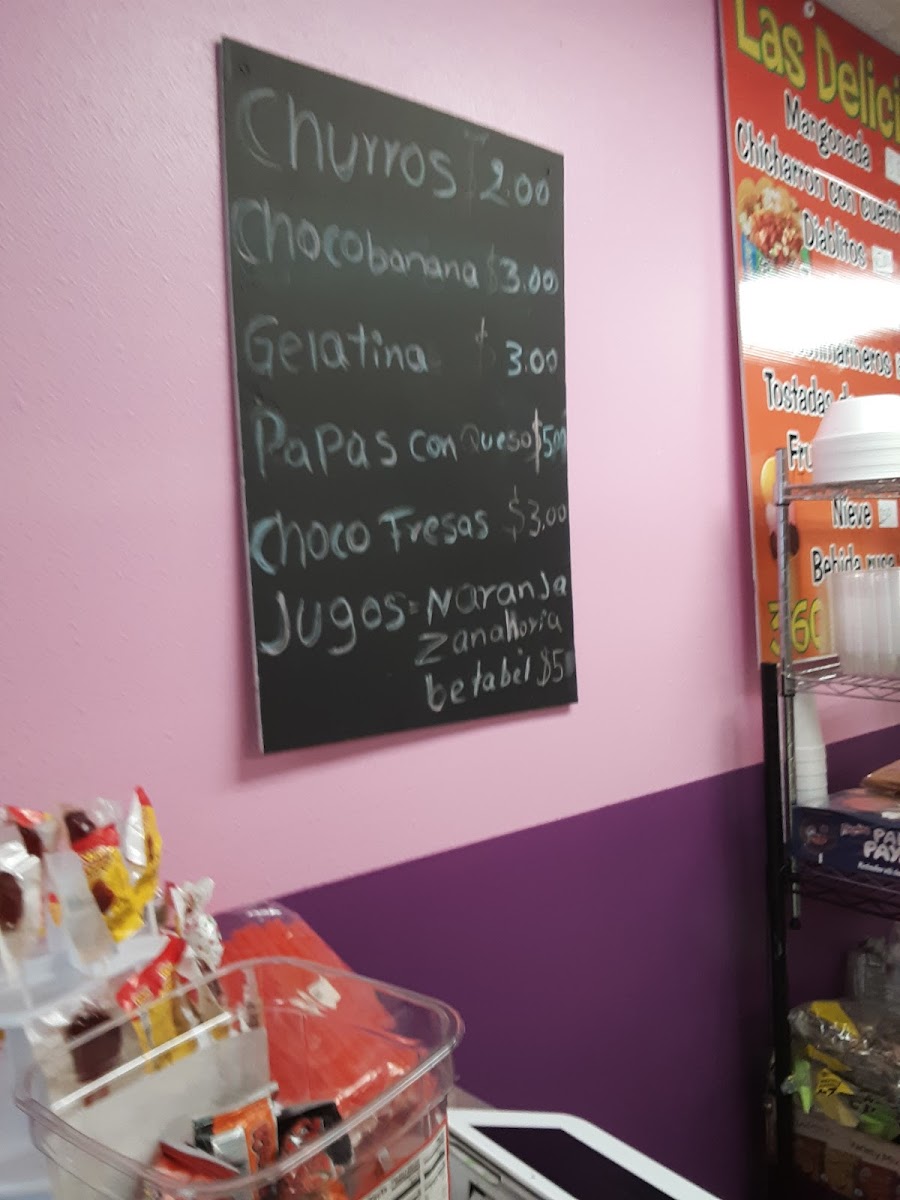 Churros 2.00
Chocobanana $3.00
Gelatina $ 3.00
Papas con Queso $5.00
Choco Fresas $3.00
Jugos = Naranja
Zanahoria
betabel $5
Las Delici
Mangonada
Chicharron con cuerit
Diablitos
Tostadas
Fru
Nieve
Bebida
360